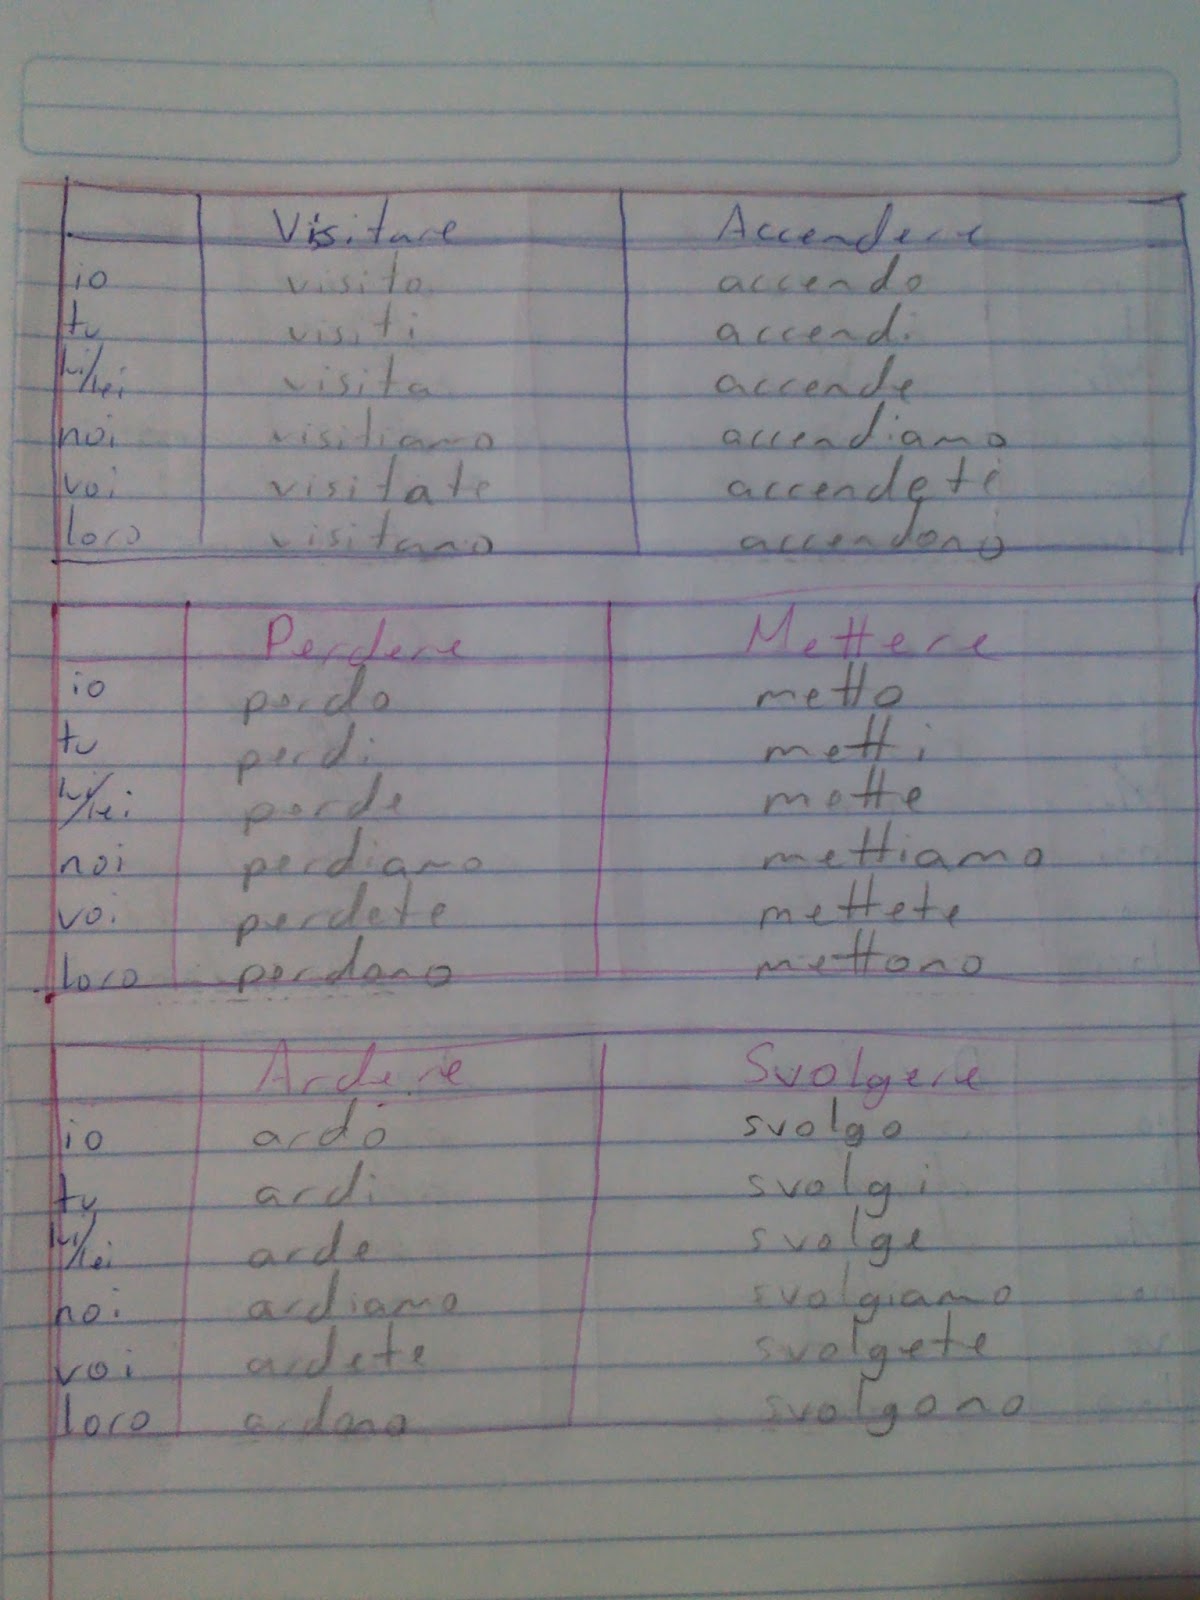 Visitare Accendere
io visito accendo
tu visiti accendi
lui/lei visita accende
noi visitiamo accendiamo
voi visitate accendete
loro visitano accendono
Perdere Mettere
io perdo metto
tu perdi metti
lui/lei perde mette
noi perdiamo mettiamo
voi perdete mettete
loro perdono mettono
Ardere Svolgere
io ardo svolgo
tu ardi svolgi
lui/lei arde svolge
noi ardiamo svolgiamo
voi ardete svolgete
loro ardono svolgono